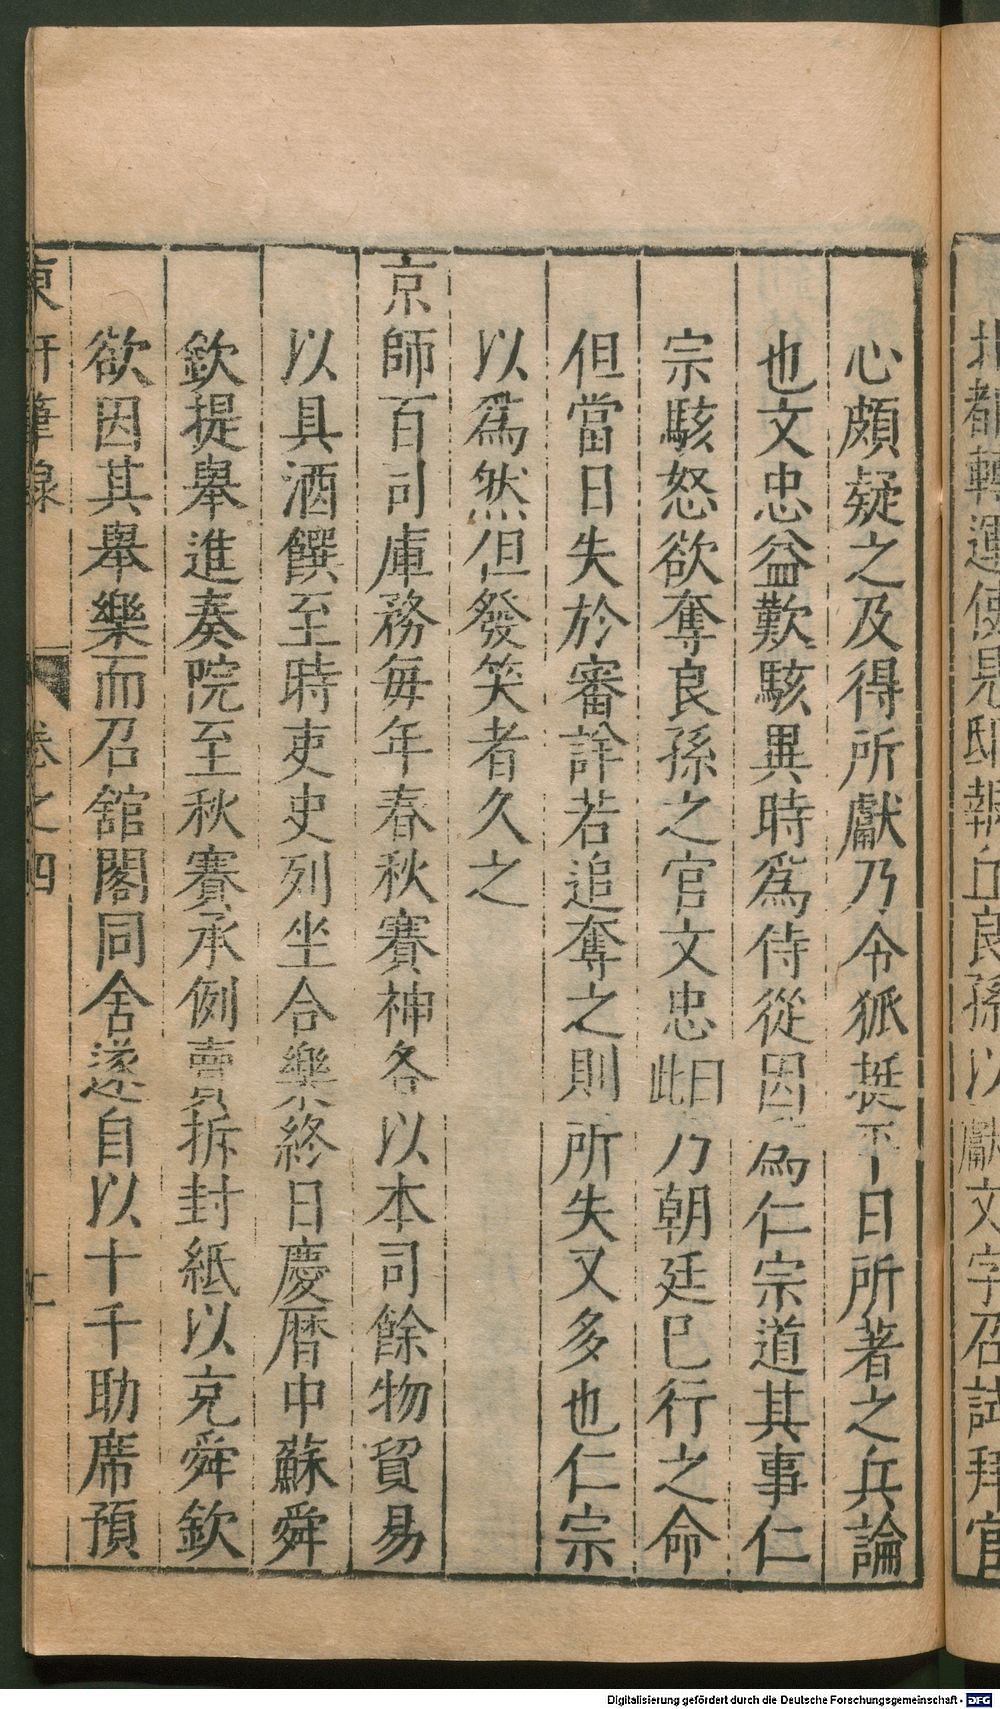 北都轉運使見邸報丘良孫以獻文字召試拜官
心頗疑之及得所獻乃令狐挺平日所著之兵論
也文忠益歎駭異時爲侍從因爲仁宗道其事仁
宗駭怒欲奪良孫之官文忠曰此乃朝廷已行之命
但當日失於審詳若追奪之則所失又多也仁宗
以爲然但發笑者久之
京師百司庫務每年春秋賽神各以本司餘物貿易
以具酒饌至時吏史列坐合樂終日慶曆中蘇舜
欽提舉進奏院至秋賽承例賣拆封紙以充舜欽
欲因其舉樂而召舘閣同舍遂自以十千助席預
東軒筆錄 卷之四
Digitalisierung gefördert durch die Deutsche Forschungsgemeinschaft - DFG